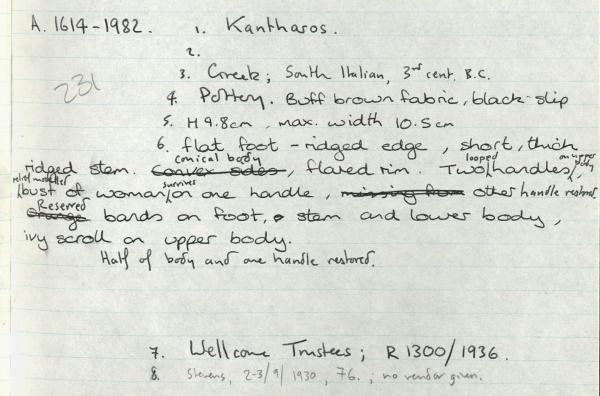 A. 1614-1982. 1. Kantharos.
2.
231
3. Greek; South Italian, 3rd cent. B.C.
4. Pottery. Buff brown fabric, black slip
5. H 9.8cm, max. width 10.5cm
6. flat foot - ridged edge, short, thick
ridged stem. Convex sides conical body, flared rim. Two looped handles on upper body,
relief moulded bust of woman survives on one handle, missing from other handle restored
Orange Reserved bands on foot, stem and lower body,
ivy scroll on upper body.
Half of body and one handle restored.
7. Wellcome Trustees; R 1300/1936.
8. Stevens, 2-3/9/1930, 76.; no vendor given.